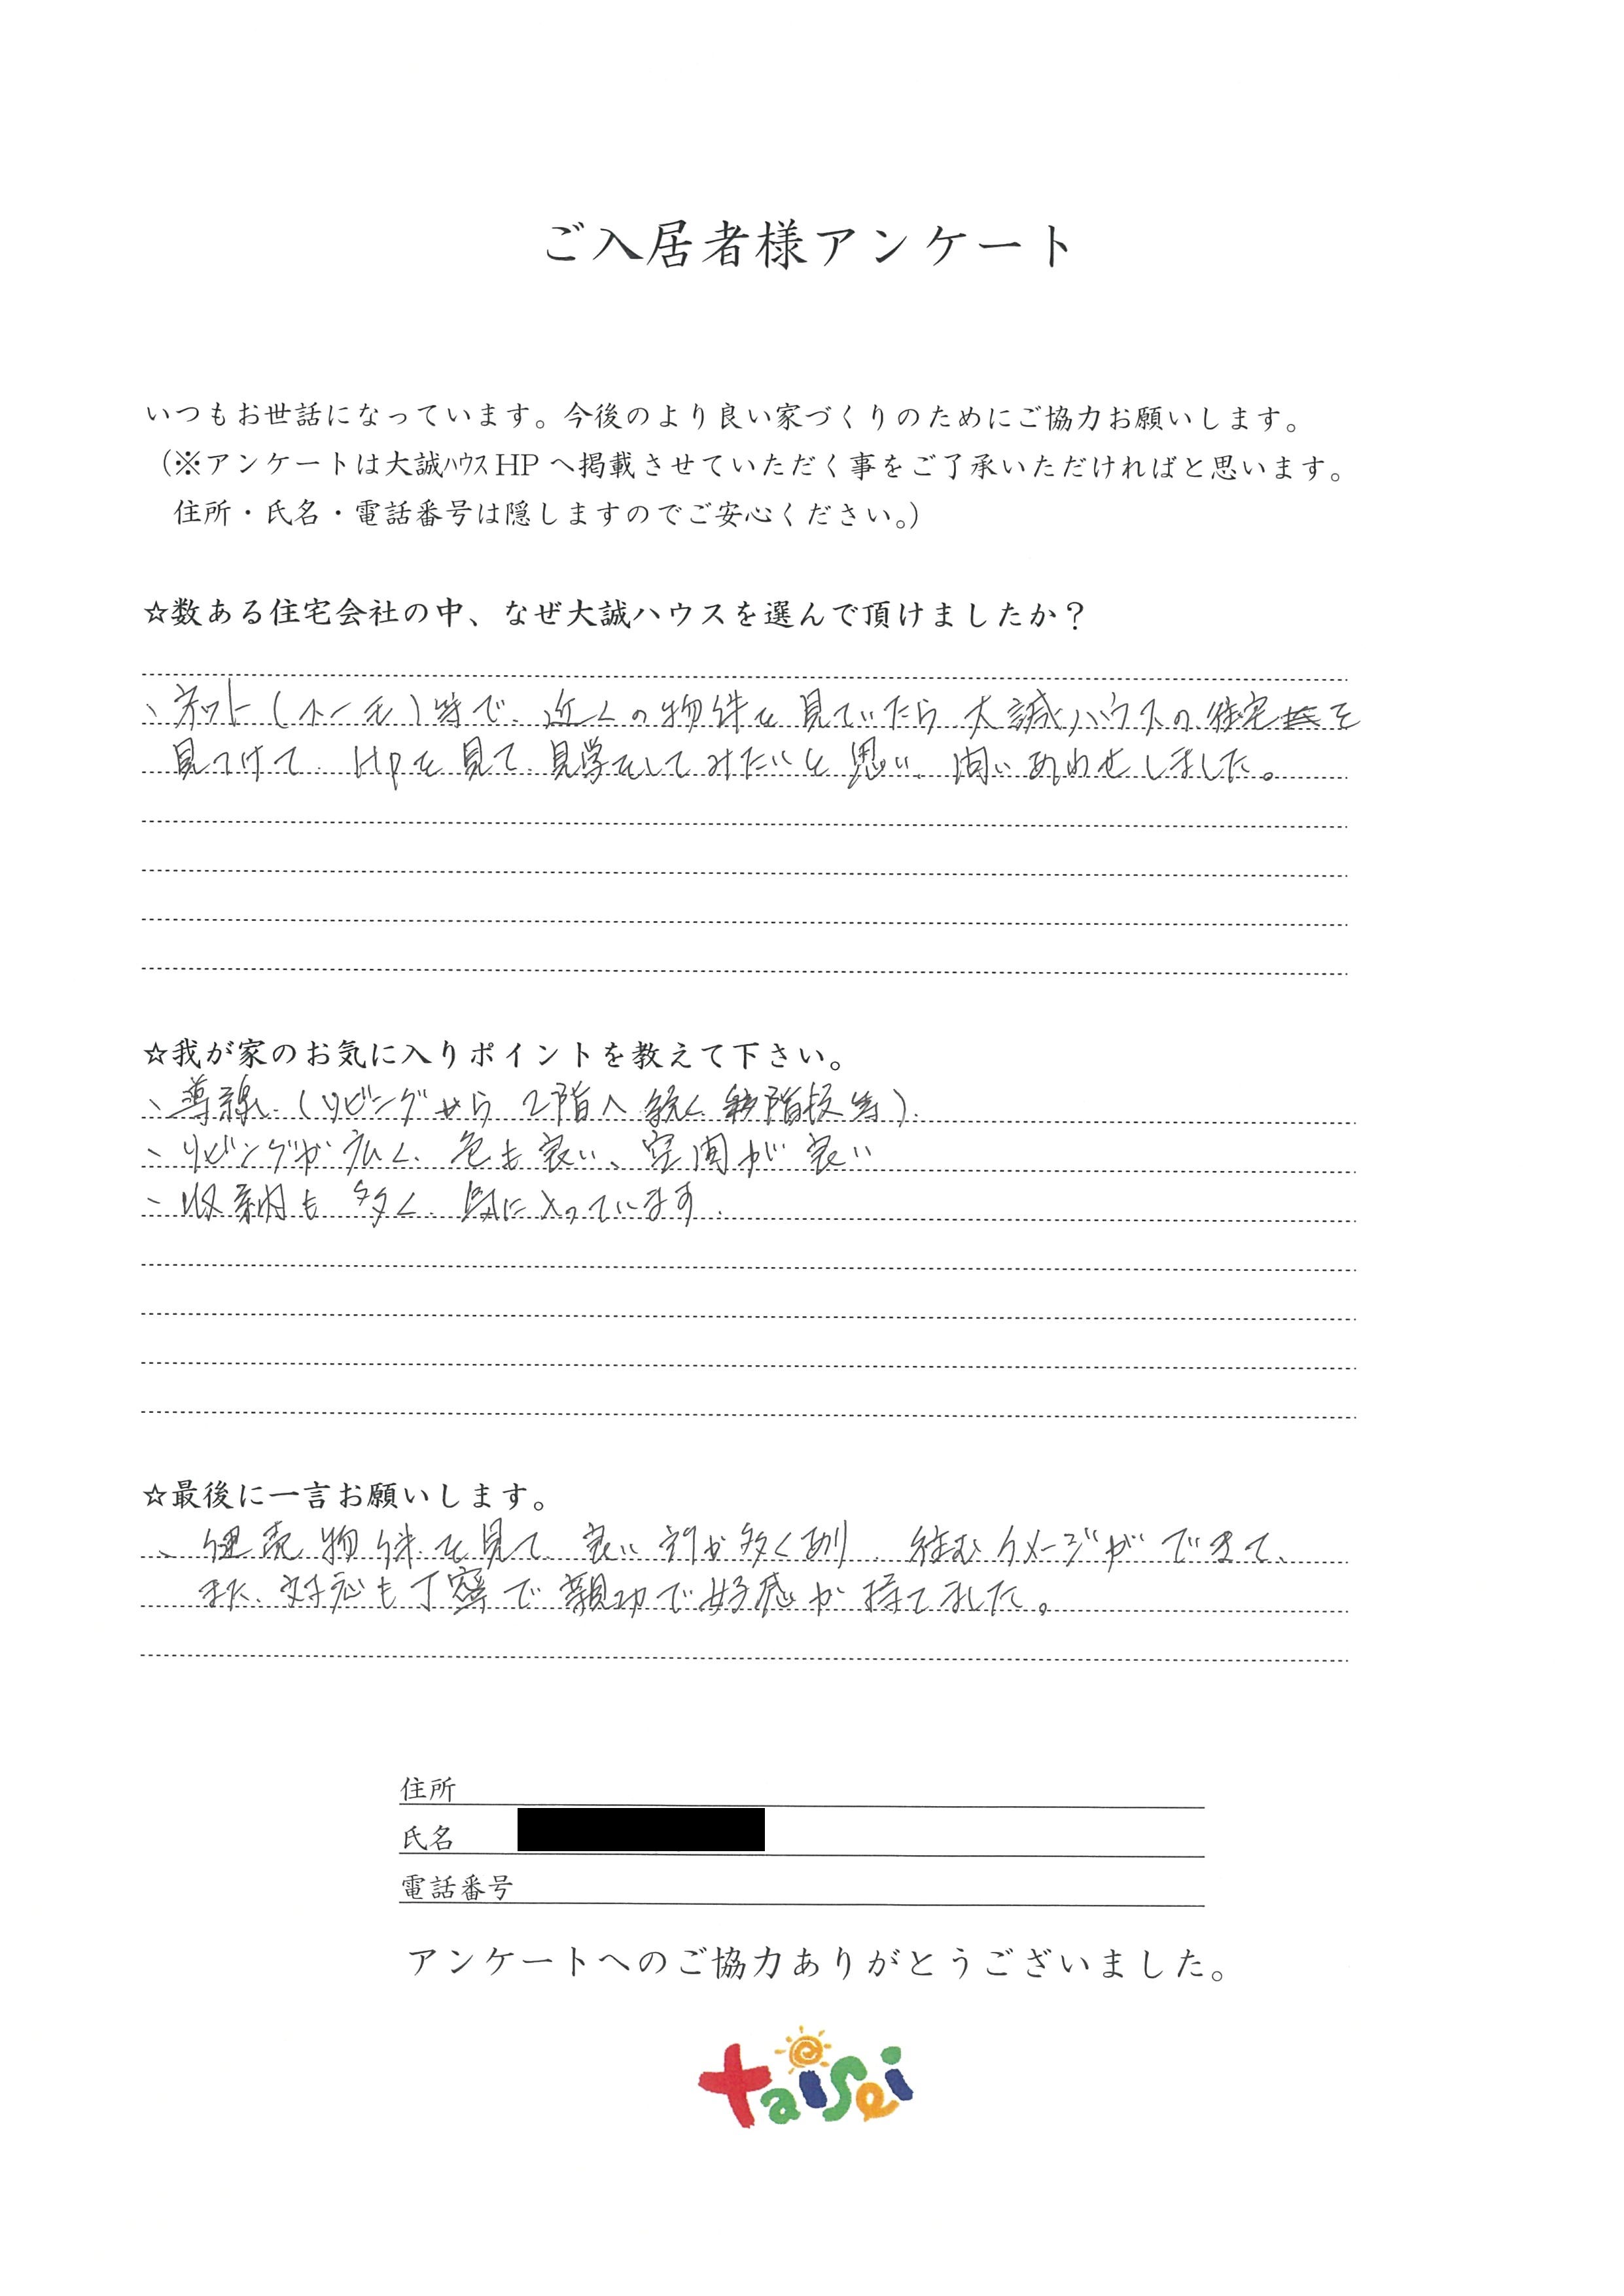 ご入居者様アンケート
いつもお世話になっています。今後のより良い家づくりのためにご協力お願いします。
（※アンケートは大誠ﾊｳｽHPへ掲載させていただく事をご了承いただければと思います。
住所・氏名・電話番号は隠しますのでご安心ください。）
☆数ある住宅会社の中、なぜ大誠ハウスを選んで頂けましたか？
、ネット(スーモ)等で、近くの物件を見ていたら大誠ハウスの住宅を
見つけて、HPを見て、見学をしてみたいと思い、問いあわせしました。
☆我が家のお気に入りポイントを教えて下さい。
、導線、(リビングから2階へ続く階段等)、
、リビングが広く、色も良い、空間が良い
、収納も多く、気に入っています、
☆最後に一言お願いします。
、建売物件を見て、良い所が多くあり、住むイメージができて、
また、対応も丁寧で親切で好感が持てました。
住所
氏名
電話番号
アンケートへのご協力ありがとうございました。
taisei